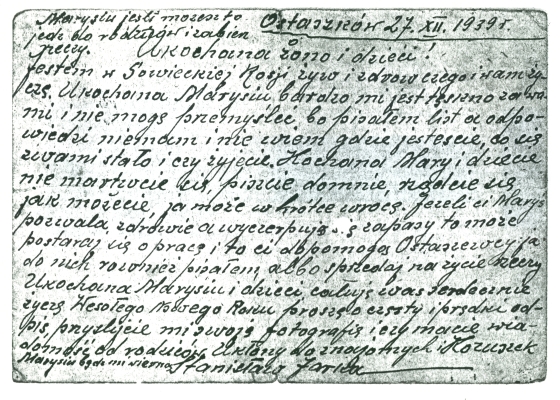 Marysiu jeśli możesz to
jedź do rodziców i zabierz
rzeczy.
Ostaszków 27. XII. 1939 r
Ukochana żono i dzieci!
Jestem w Sowieckiej Rosji żyw i zdrów czego i wam ży-
czę. Ukochana Marysiu bardzo mi jest tęskno za wa-
mi i nie mogę przemyśleć, bo pisałem list a odpo-
wiedzi niemam i nie wiem gdzie jesteście, co się
zwami stało i czy żyjecie. Kochana Mary i dziecie
nie martwcie się, piszcie domnie, rządźcie się
jak możecie, ja może wkrótce wrócę. Jeżeli ci Marys
pozwala zdrówie a wyczerpują się zapasy to może
postaraj się o pracę i to ci dopomogą Ostaszewscy, ja
do nich również pisałem, albo sprzedaj na życie rzeczy
Ukochana Marysiu i dzieci całuję was serdecznie
życzę Wesołego Nowego Roku proszę o częsty i prędki od-
pis, przyślijcie mi swoją fotografię i czy macie wia-
domość od rodziców. Ukłony do znajomych i
Marysiu bądź mi wierna Stanisław